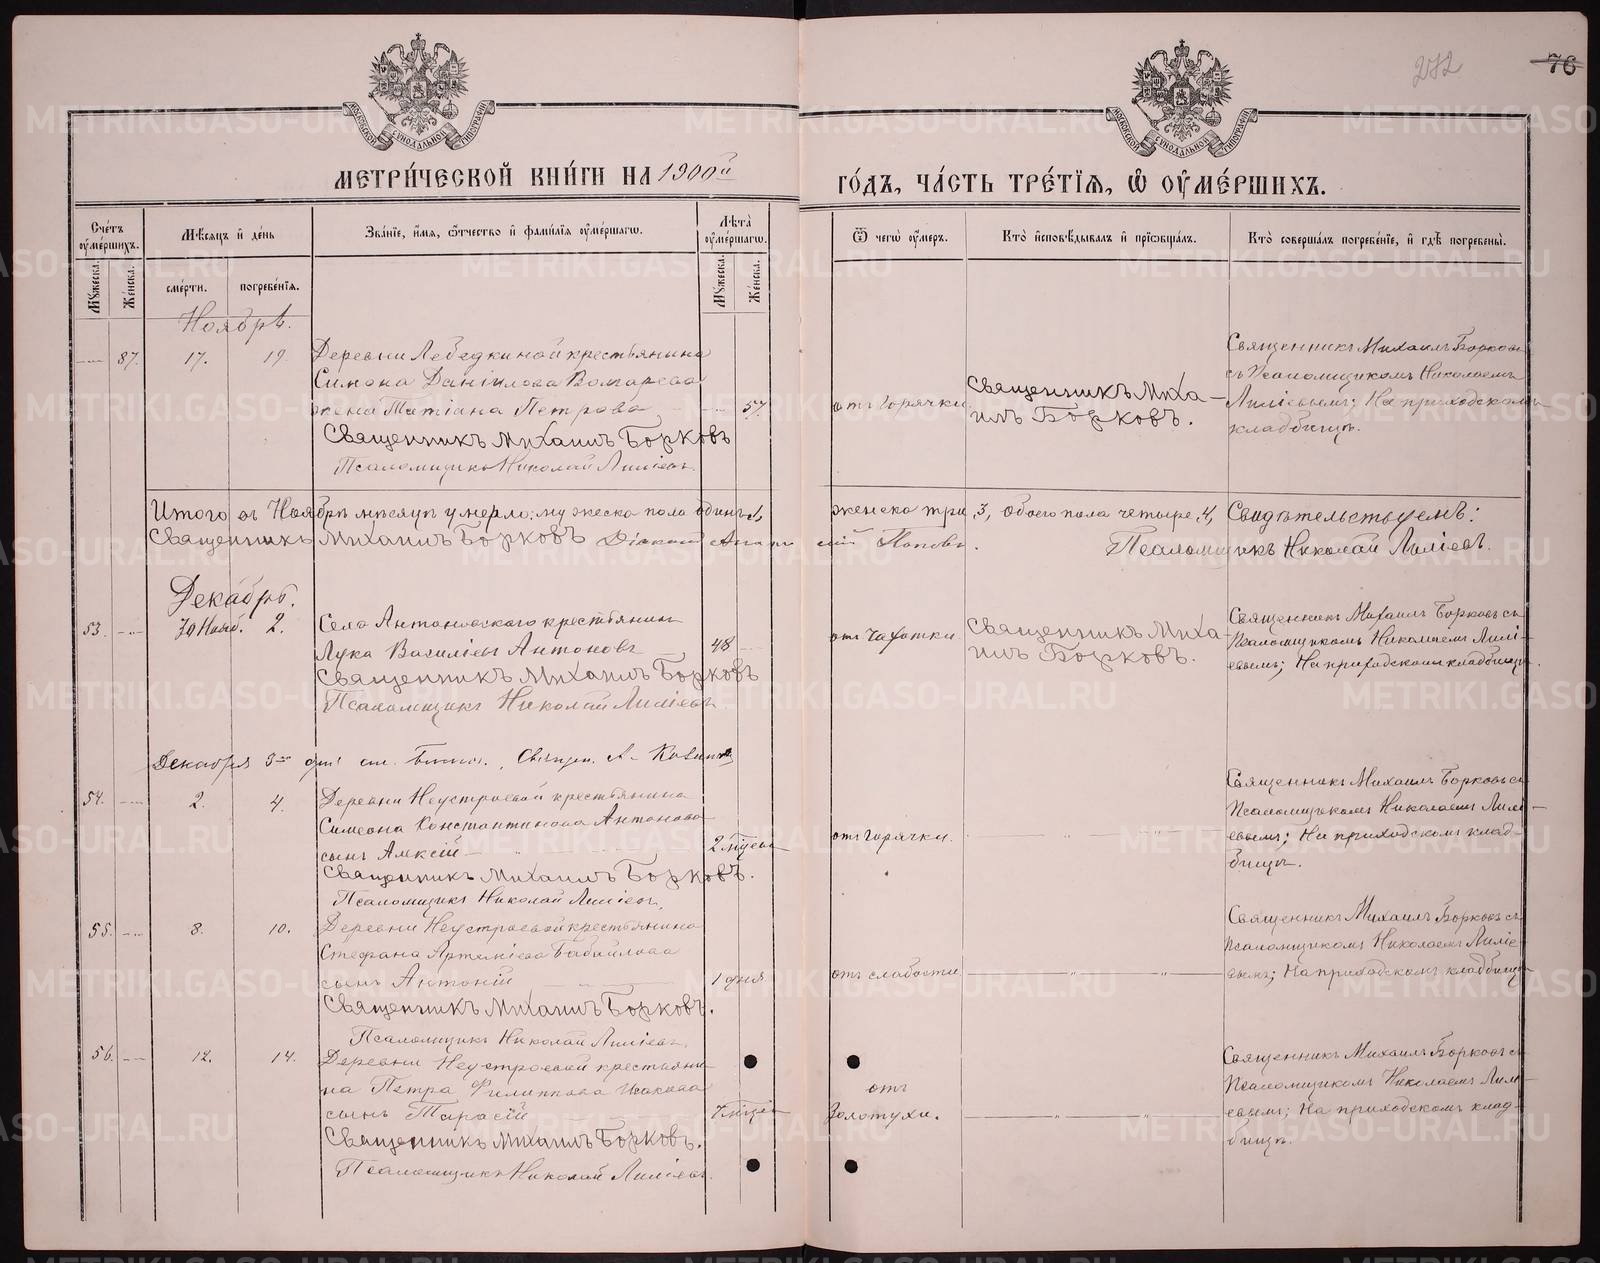 272
76
МОСКОВСКОЙ СѴНОДАЛЬНОЙ ТИПОГРАФІИ
МОСКОВСКОЙ СѴНОДАЛЬНОЙ ТИПОГРАФІИ
МЕТРИ́ЧЕСКОЙ КНИ́ГИ НА 1900й
ГО́ДЪ, ЧА́СТЬ ТРЕ́ТІѦ, Ѡ҆ ОУ҆МЕ́РШИХЪ.
Сче́тъ оу҆ме́ршихъ.
Мѣ́сѧцъ и҆ де́нь
Зва́нїе, и҆́мѧ, ѻ҆́тчество и҆ фами́лїѧ оу҆ме́ршагѡ.
Лѣ̑та̀ оу҆ме́ршагѡ.
Ѿ чегѡ̀ оу҆́меръ.
Кто̀ и҆сповѣ́дывалъ и҆ прїѡбща́лъ.
Кто̀ соверша́лъ погребе́нїе, и҆ гдѣ̀ погребены̀.
Мꙋ́жеска.
Же́нска.
сме́рти.
погребе́нїѧ.
Мꙋ́жеска.
Же́нска.
Ноябрь.
87. 17. 19 Деревни Лебедкиной крестьянина
Симона Даніилова Волгарева
жена Татіана Петрова 57.
Священникъ Михаилъ Борковъ
Псаломщикъ Николай Лиліевъ.
отъ горячки
Священникъ Миха-
илъ Борковъ.
Священникъ Михаилъ Борковъ
съ Псаломщикомъ Николаемъ
Лиліевымъ; На приходскомъ
кладбищѣ.
Итого въ Ноябрѣ мѣсяцѣ умерло: мужеска пола одинъ 1, женска три 3, обоего пола четыре, 4, Свидѣтельствуемъ:
Священникъ Михаилъ Борковъ Діаконъ Поповъ. Псаломщикъ Николай Лиліевъ.
Декабрь.
53. 30 Нояб. 2. Села Антоновского крестьянин
Лука Василіевъ Антоновъ 48
Священникъ Михаилъ Борковъ
Псаломщикъ Николай Лиліевъ
отъ Чахотки
Священникъ Миха-
илъ Борковъ.
Священникъ Михаилъ Борковъ съ
Псаломщикомъ Николаемъ Лилі-
евымъ; На приходскомъ кладбищѣ.
Декабря 3го дня Священ. А.
54. 2. 4. Деревни Неустроевой крестьянина
Симеона Константинова Антонова
сынъ Алексій 2 мѣсяц
Священникъ Михаилъ Борковъ.
Псаломщикъ Николай Лиліевъ.
отъ горячки.
Священникъ Михаилъ Борковъ съ
Псаломщикомъ Николаемъ Лилі-
евымъ; На приходскомъ клад-
бищѣ.
55. 8. 10. Деревни Неустроевой крестьянина
Стефана Артеміева Бабайлова
сынъ Антоній 1 дня
Священникъ Михаилъ Борковъ.
Псаломщикъ Николай Лиліевъ.
отъ слабости
Священникъ Михаилъ Борковъ съ
Псаломщикомъ Николаемъ Лиліе-
вымъ; На приходскомъ кладбищѣ
56. 12. 14. Деревни Неустроевой крестьяни-
на Петра Филиппова Исакова
сынъ Тарасій
Священникъ Михаилъ Борковъ.
Псаломщикъ Николай Лиліевъ.
отъ
Золотухи.
Священникъ Михаилъ Борковъ съ
Псаломщикомъ Николаемъ Лилі-
евымъ; На приходскомъ клад-
бищѣ.
METRIKI.GASO-URAL.RU